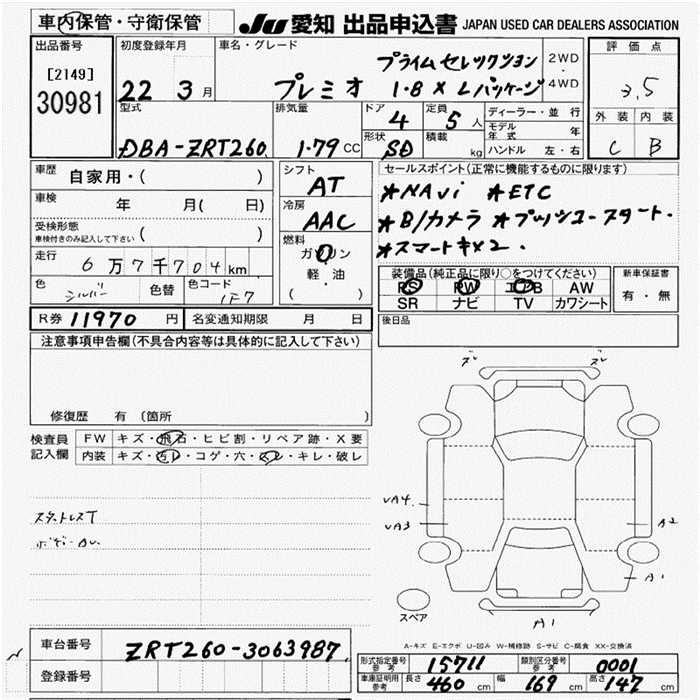 車内保管・守衛保管 JU 愛知 出品申込書 JAPAN USED CAR DEALERS ASSOCIATION
出品番号 初度登録年月 車名・グレード 評価点
[2149] 30981
22 3月 プレミオ プライムセレクション 1.8 X Lパッケージ 2WD・4WD 3.5
型式 排気量 ドア 4 定員 5人 ディーラー・並行 外装 内装
DBA-ZRT260 1.79 CC 形状 SD 積載 kg モデル年式 年 C B
ハンドル 左・右
車歴 自家用・( ) シフト AT セールスポイント(正常に機能するものに限ります)
車検 年 月( 日) 冷房 AAC ★NAvi ★ETC
受検形態 車検付きのみ記入して下さい ( ) ★B/カメラ ★プッシュースタート.
走行 6万7千704km 燃料 ガソリン 軽・油 ( ) ★スマートキー×2.
色 シルバー 色替 色コード 1F7
装備品(純正品に限り○をつけてください) 新車保証書
PS PW エアB AW 有・無
SR ナビ TV カワシート
R券 11970 円 名変通知期限 月 日 後日品
注意事項申告欄(不具合内容等は具体的に記入して下さい)
修復歴 有 (箇所 )
検査員記入欄 FW キズ・飛石・ヒビ割・リペア跡・X要
内装 キズ・汚レ・コゲ・穴・スレ・キレ・破レ
スタットレスT
UA4. UA3 A2 A1 A1
スペア
A-キズ E-エクボ U-凹み W-補修跡 S-サビ C-腐食 XX-交換済
車台番号 ZRT260-3063987
登録番号
形式指定番号 参考 15711 類別区分番号 参考 0001
車庫証明用 参考 長さ 460 cm 幅 169 cm 高さ 147 cm